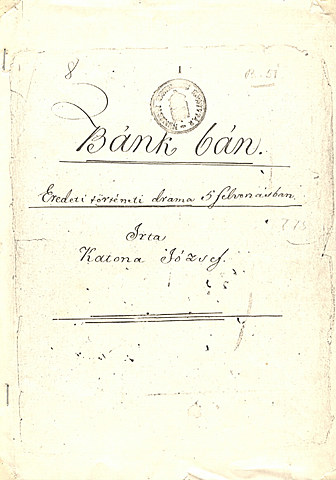 8
Bánk bán.
Eredeti történeti dráma 5 felvonásban.
Irta
Katona József.
775